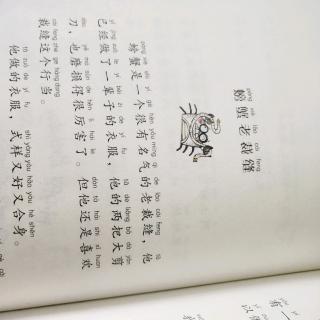 páng xiè lǎo cái feng
螃蟹老裁缝
páng xiè shì yí gè hěn yǒu míng qì de lǎo cái feng tā
螃蟹是一个很有名气的老裁缝，他
yǐ jīng zuò le yí bèi zi de yī fu tā de liǎng bǎ dà jiǎn
已经做了一辈子的衣服，他的两把大剪
dāo yě mó sǔn de hěn lì hai le dàn tā hái shi xǐ huan
刀，也磨损得很厉害了。但他还是喜欢
cái feng zhè ge háng dang
裁缝这个行当。
tā zuò de yī fu shì yàng yòu hǎo yòu hé shēn
他做的衣服，式样又好又合身。
有一